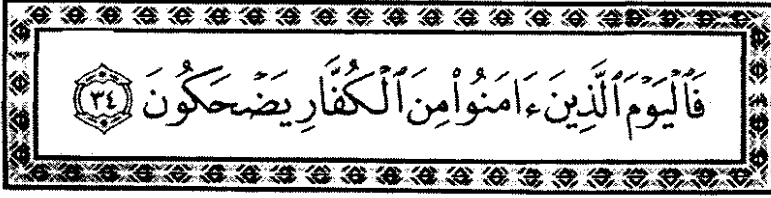 فَٱلْيَوْمَ ٱلَّذِينَ ءَامَنُوا۟ مِنَ ٱلْكُفَّارِ يَضْحَكُونَ ٣٤